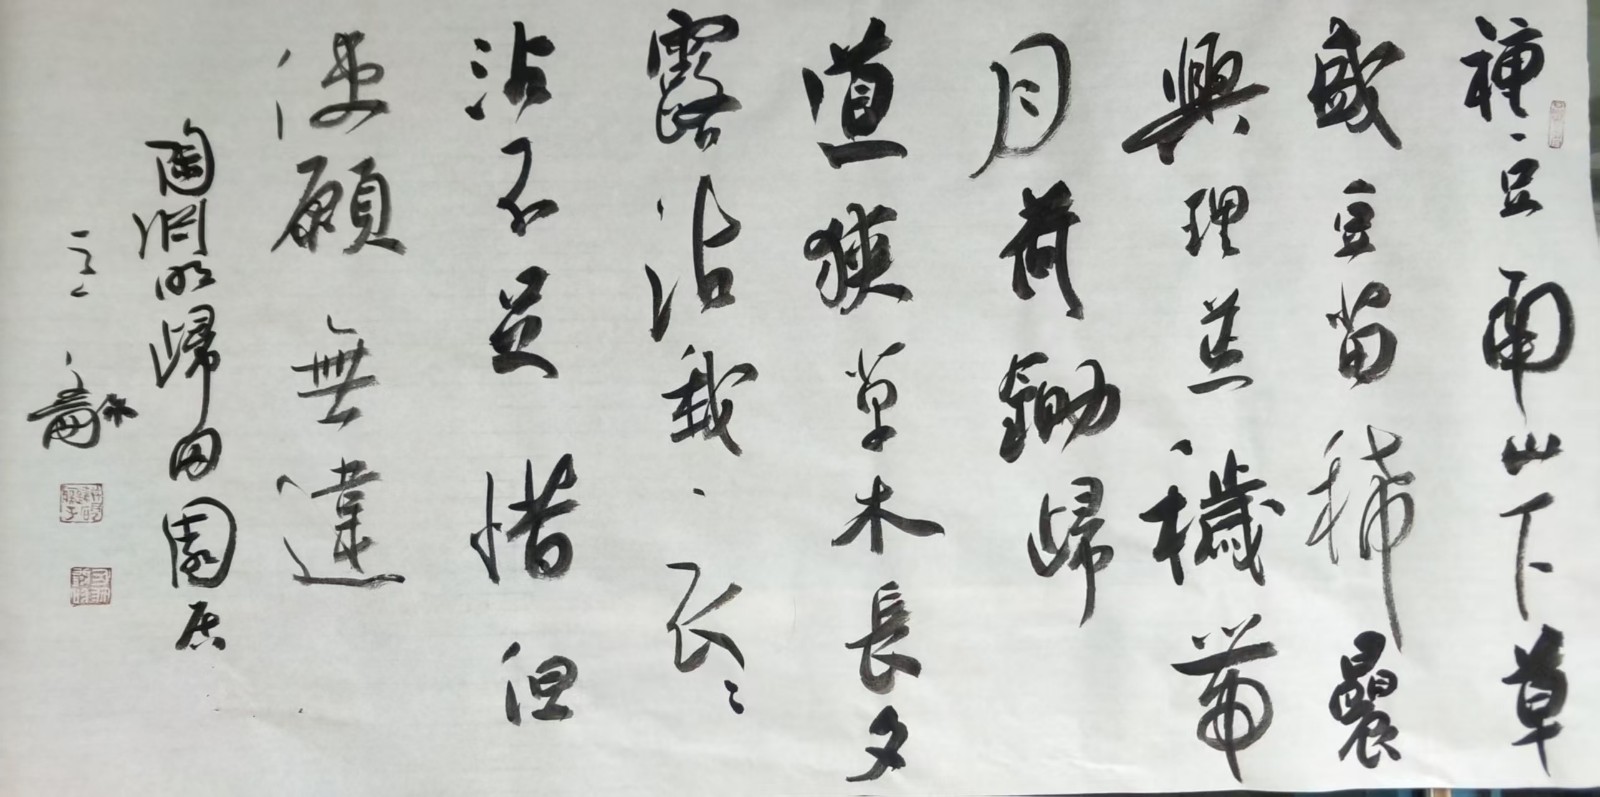 種豆南山下草
盛豆苗稀晨
興理荒穢帶
月荷鋤歸
道狹草木長夕
露沾我衣〻
沾不足惜但
使願無違
陶淵明歸田園居